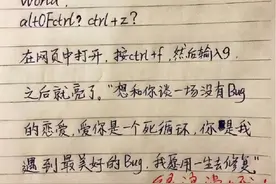 World.
alt OF ctrl? ctrl+z?
在网页中打开,按ctrl+f,然后输入9.
之后就亮了。"想和你谈一场没有Bug
的恋爱,爱你是一个死循环,你是我
遇到最美好的Bug,我要用一生去修复"